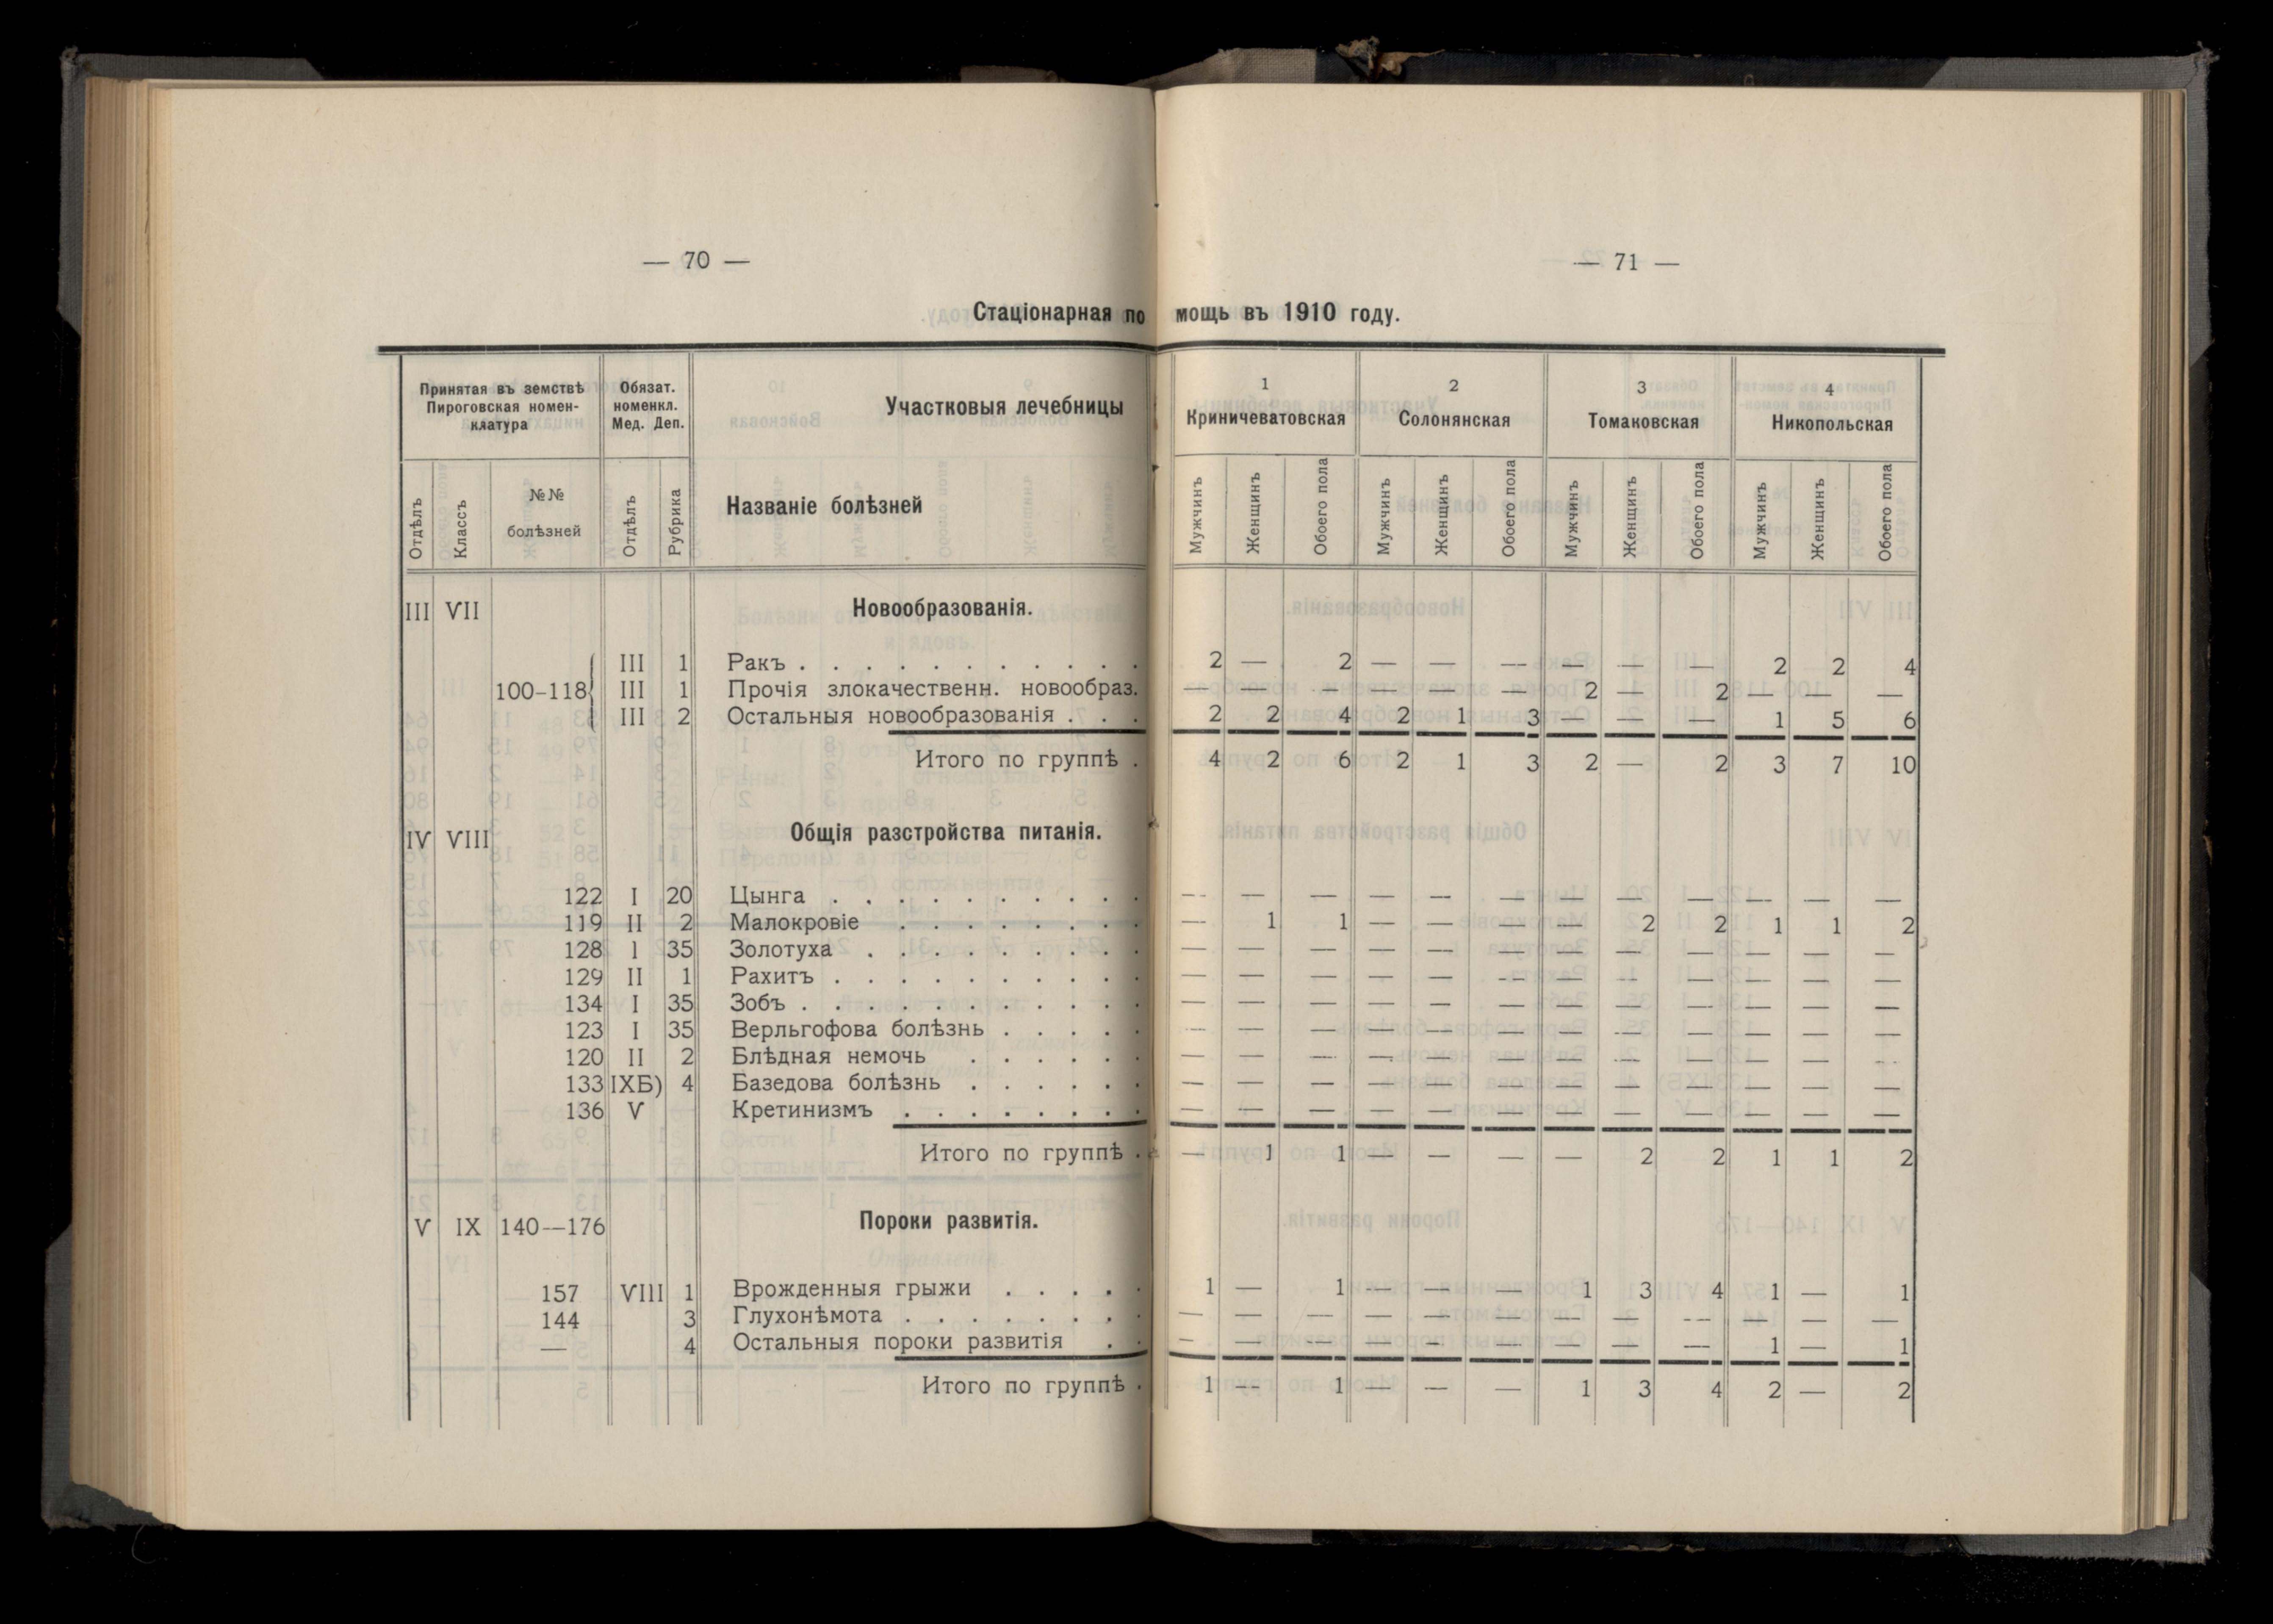 — 70 —
— 71 —
Стаціонарная помощь въ 1910 году.
Принятая въ земствѣ
Пироговская номен-
клатура
Обязат.
номенкл.
Мед. Деп.
Участковыя лечебницы
1
Криничеватовская
2
Солонянская
3
Томаковская
4
Никопольская
Отдѣлъ
Классъ
№№
болѣзней
Отдѣлъ
Рубрика
Названіе болѣзней
Мужчинъ Женщинъ Обоего пола Мужчинъ Женщинъ Обоего пола Мужчинъ Женщинъ Обоего пола Мужчинъ Женщинъ Обоего пола
III VII Новообразованія.
III 1 Ракъ . . . . . . . . . . . 2 — 2 — — — — — — 2 2 4
100–118 III 1 Прочія злокачественн. новообраз. — — — — — — 2 — 2 — — —
III 2 Остальныя новообразованія . . . 2 2 4 2 1 3 — — — 1 5 6
Итого по группѣ . 4 2 6 2 1 3 2 — 2 3 7 10
IV VIII Общія разстройства питанія.
122 I 20 Цынга . . . . . . . . . . — — — — — — — — — — — —
119 II 2 Малокровіе . . . . . . . . — 1 1 — — — — 2 2 1 1 2
128 I 35 Золотуха . . . . . . . . . — — — — — — — — — — — —
129 II 1 Рахитъ . . . . . . . . . . — — — — — — — — — — — —
134 I 35 Зобъ . . . . . . . . . . . — — — — — — — — — — — —
123 I 35 Верльгофова болѣзнь . . . . . — — — — — — — — — — — —
120 II 2 Блѣдная немочь . . . . . . — — — — — — — — — — — —
133 IXБ) 4 Базедова болѣзнь . . . . . . — — — — — — — — — — — —
136 V Кретинизмъ . . . . . . . . — — — — — — — — — — — —
Итого по группѣ . — 1 1 — — — — 2 2 1 1 2
V IX 140—176 Пороки развитія.
157 VIII 1 Врожденныя грыжи . . . . . 1 — 1 — — — 1 3 4 1 — 1
144 3 Глухонѣмота . . . . . . . . — — — — — — — — — — — —
— 4 Остальныя пороки развитія . . — — — — — — — — — 1 — 1
Итого по группѣ . 1 — 1 — — — 1 3 4 2 — 2